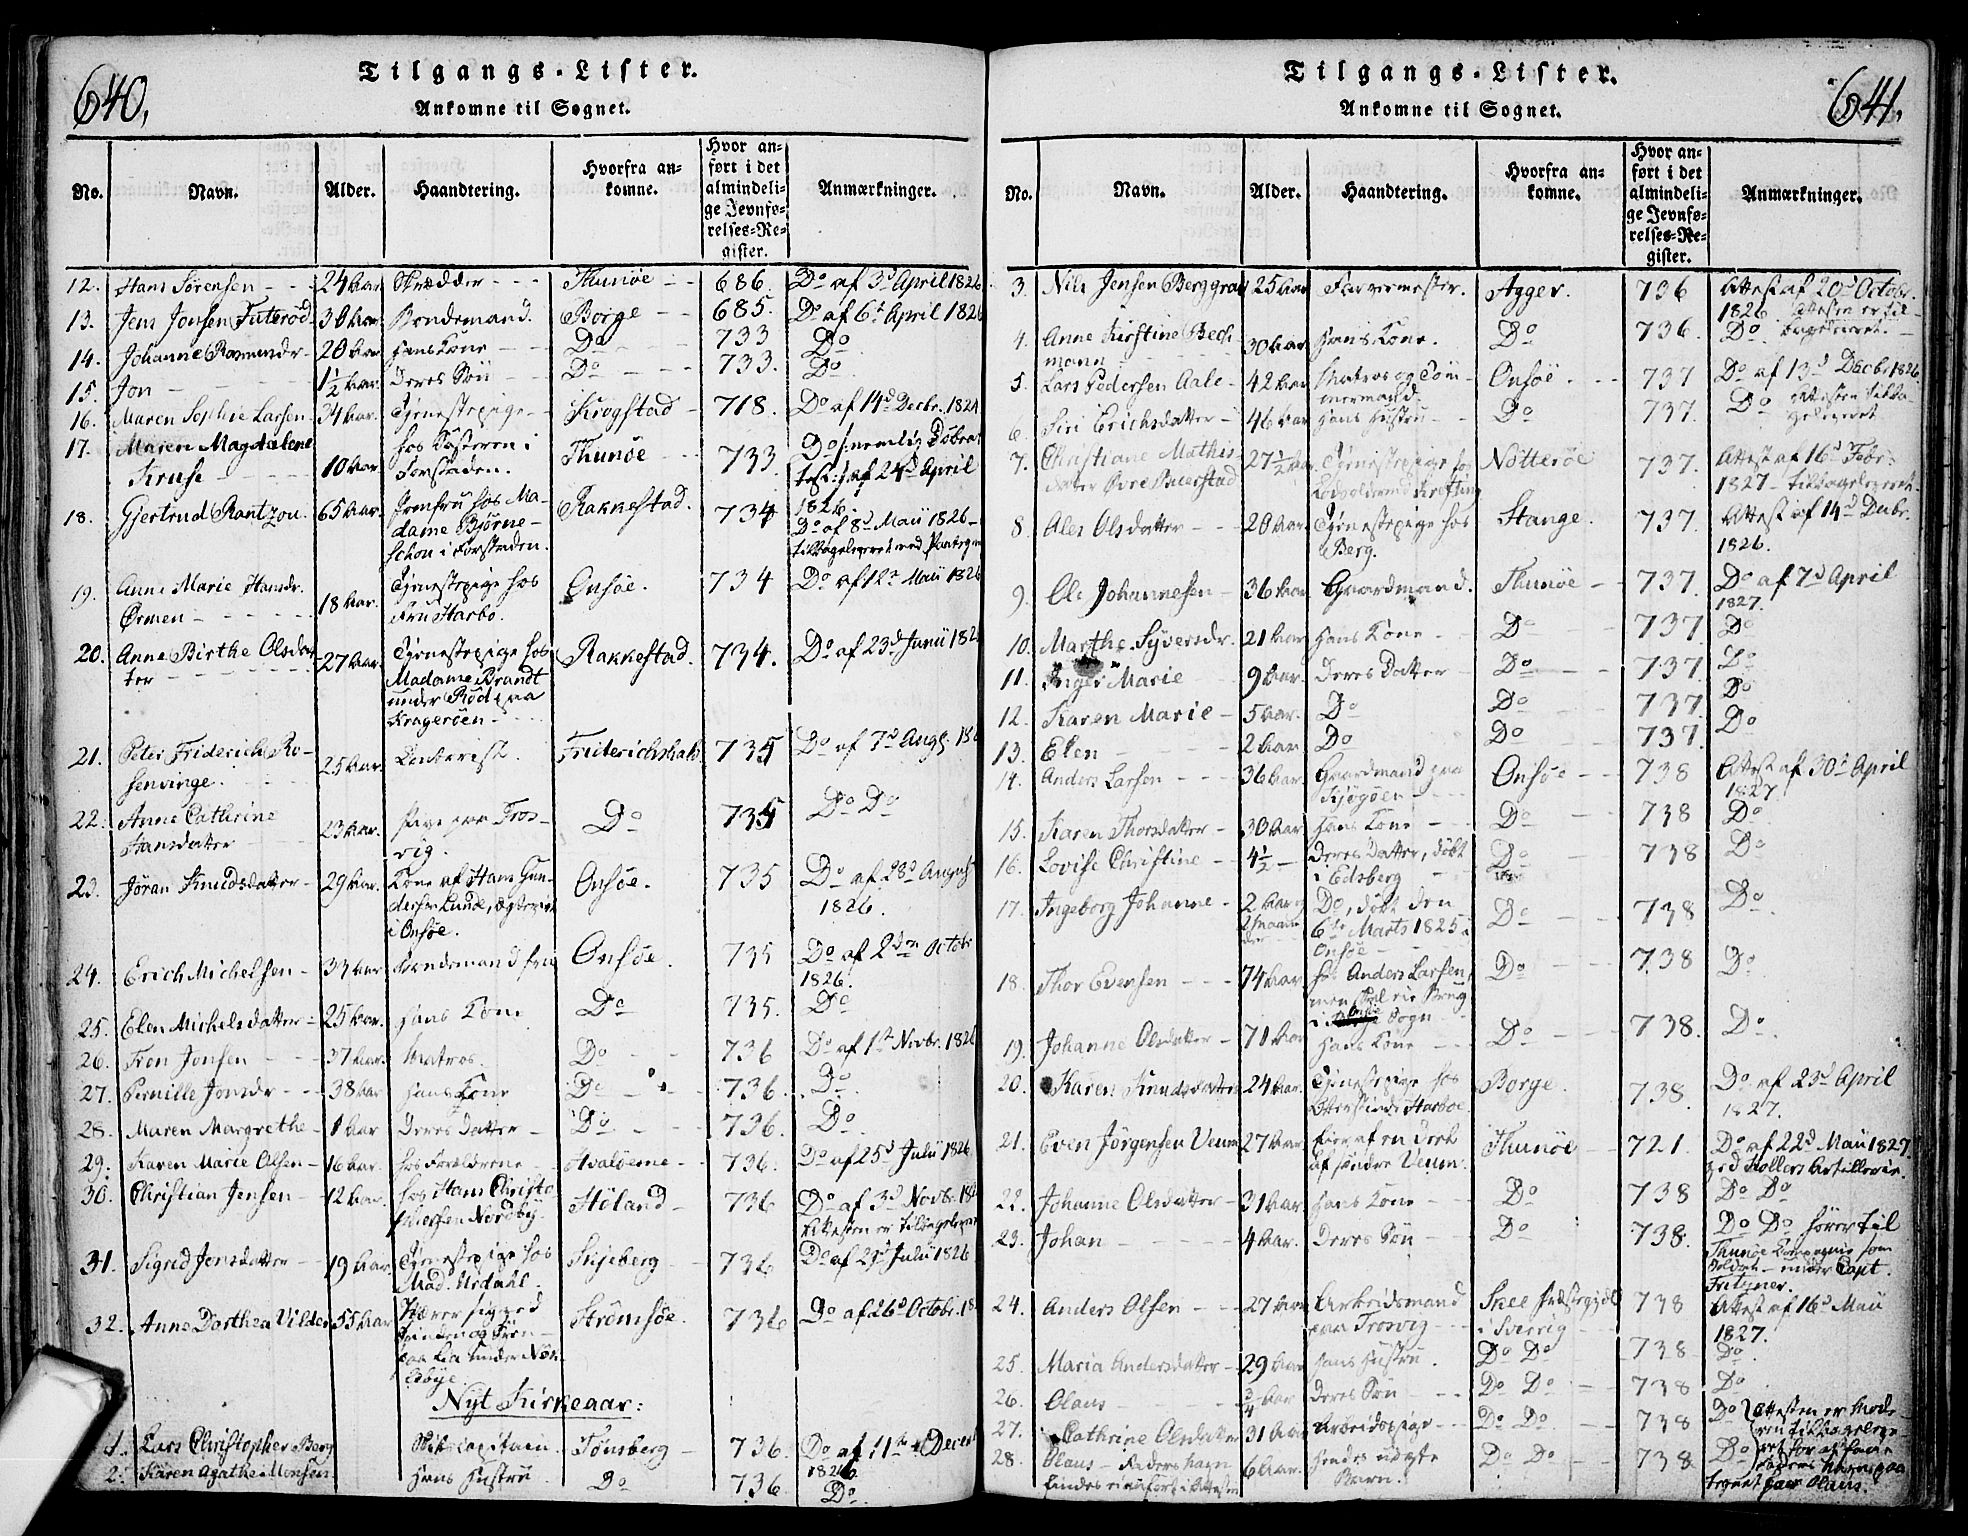 640,
Tilgangs-Lister.
Ankomne til Sognet.
No. Navn. Alder. Haandtering. Hvorfra ankomne. Hvor anført i det almindelige Jevnførelses-Register. Anmærkninger.
12. Hans Sørensen 24 Aar Skrædder Thunöe 686. Do af 3d April 1826
13. Jens Jonsen Futeröd 30 Aar Bondemand. Borge 685. Do af 6t April 1826
14. Johanne Rasmusdr 20 Aar hans Kone Do 733 Do
15. Jon 1½ Aar. Deres Sön Do 733. Do
16. Maren Sophie Larsen 34 Aar. Tjenestepige Krogstad 718. Do af 14d Decbr. 1824
17. Maren Magdalene
Kruse 10 Aar hos Søsteren i
Forstaden. Thunöe 733 Do nemlig Döbeat
test af 24d April
1826.
18. Gjertrud Rantzou. 65 Aar. Jomfru hos Ma-
dame Björne-
schou i Forstaden. Rakkestad. 734 Do af 8d Maii 1826
tilbagelevert med Paategn
19. Anne Marie Hansdr.
Örmen 18 Aar. Tjenestepige hos
Fru Harbo. Onsöe. 734 Do af 12t Maii 1826
20. Anne Birthe Olsdat-
ter 27 Aar. Tjenestepige hos
Madame Brandt
under Röd paa
Krageröen Rakkestad. 734. Do af 23d Junii 182
21. Peter Friderich Ro-
senvinge. 25 Aar. Conterist. Friderichshald 735 Do af 7d Aug. 18
22. Anne Cathrine
Hansdatter 23 Aar. Pige paa Tros-
vig. Do 735 Do Do
23. Jöran Knudsdatter 29 Aar. Kone af Hans Gun-
dersen Lunde, ægteviet
i Onsöe. Onsöe. 735 Do af 28d August
1826.
24. Erich Michelsen 33 Aar Bondemand Onsöe. 735 Do af 2den Octobr
1826.
25. Elen Michelsdatter 25 Aar. hans Kone Do 735. Do
26. Tron Jonsen 37 Aar. Matros. Do 736 Do af 1st Novbr. 1826
27. Pernille Jonsdr 38 Aar hans Kone Do 736. Do
28. Maren Margrethe 1 Aar Deres Datter Do 736. Do
29. Karen Marie Olsen 16 Aar. hos Forældrene Hvalöerne 736. Do af 25d Julii 1826
30. Christian Jensen 12 Aar. hos Hans Christo
phersen Nordby. Höland 736 Do af 3d Novbr. 182
Attesten er tilbagelever
31. Sigrid Jonsdatter 19 Aar. Tjenestepige hos
Mad. Urdahl. Skjeberg 736 Do af 29d Julii 1826
32. Anne Dorthea Vilder 55 Aar Nærer sig ved
paa Lia under Nör-
bye. Strömsöe. 736 Do af 26d Octobr. 18
Nyt Kirkeaar:
1. Lars Christopher Berg Skibscapitain. Tönsberg 736. Do af 11te Decem
1826
2. Karen Agathe Monsen hans Hustru Do 736. Do
641.
Tilgangs-Lister.
Ankomne til Sognet.
No. Navn. Alder. Haandtering. Hvorfra ankomne. Hvor anført i det almindelige Jevnførelses-Register. Anmærkninger.
3. Nils Jensen Berggrav 25 Aar Farvermester. Agger. 736 Attest af 20d Octobr.
1826. Attesten er til-
bageleveret.
4. Anne Kirstine Bech
mann 30 Aar hans Kone. Do 736. Do
5. Lars Pedersen Aale 42 Aar Matros og Töm-
mermand. Onsöe. 737 Do af 13d Decbr 1826.
6. Siri Erichsdatter 46 Aar hans Hustru Do 737. Do Attesten tilba
geleveret
7. Christiane Mathis-
datter Övre Buerstad 27½ Aar Tjenestepige hos
Krefting Nötteröe 737. Attest af 16d Febr.
1827 tilbageleveret.
8. Ales Olsdatter 20 Aar Tjenestepige hos
Berg. Stange. 737. Attest af 14d Decbr.
1826.
9. Ole Johannesen 36 Aar Gaardmand. Thunöe 737. Do af 7d April
1827.
10. Marthe Syversdr. 21 Aar hans Kone Do 737 Do
11. Inger Marie 9 Aar. Deres Datter Do 737. Do
12. Karen Marie 5 Aar. Do Do 737. Do
13. Elen 2 Aar. Do Do 737. Do
14. Anders Larsen 36 Aar Gaardmand paa
Kjögöen Onsöe 738 Attest af 30d April
1827
15. Karen Thorsdatter 30 Aar hans Kone Do 738 Do
16. Lovise Christine 4½ Deres Datter, döbt
i Edsberg Do 738 Do
17. Ingeborg Johanne 2 Aar
2 Maane
der Do, döbt den
6te Marts 1825 i
Onsöe Do 738 Do
18. Thor Evensen 74 Aar hos Anders Larsen,
men skal
i Sogn Do 738 Do
19. Johanne Olsdatter 71 Aar hans Kone Do 738. Do
20. Karen Knudsdatter 24 Aar. Tjenestepige hos
Harboe. Borge. 738. Do af 23d April
1827.
21. Even Jörgensen Veum 27 Aar Eier af en Deel
af söndre Veum. Thunöe 721. Do af 22d Maii 1827.
ved Hollers Artillerie.
22. Johanne Olsdatter 31 Aar hans Kone Do 738 Do Do
23. Johan 4 Aar. Deres Sön Do 738. Do Do hörer til
Thunöe Compagnie som
Soldat under Capt.
Fritzner.
24. Anders Olsen 27 Aar Arbeidsmand
paa Trosvig Skee Præstegjeld
i Sverrig 738 Attest af 16d Maii
1827.
25. Maria Andersdatter 29 Aar hans Hustru. Do Do 738 Do
26. Olaus ¾ Aar Deres Sön Do Do 738 Do
27. Cathrine Olsdatter 31 Aar Arbeidspige Do Do 738 Do Attesten er Mode-
ren tilbageleve-
ret for at faae
28. Olaus Faderens Navn
findes ei anfört i Attesten 6 Aar. hendes uægte
Barn. Do Do 738 Do Faderens Navn paa
tegnet paa Olaus.